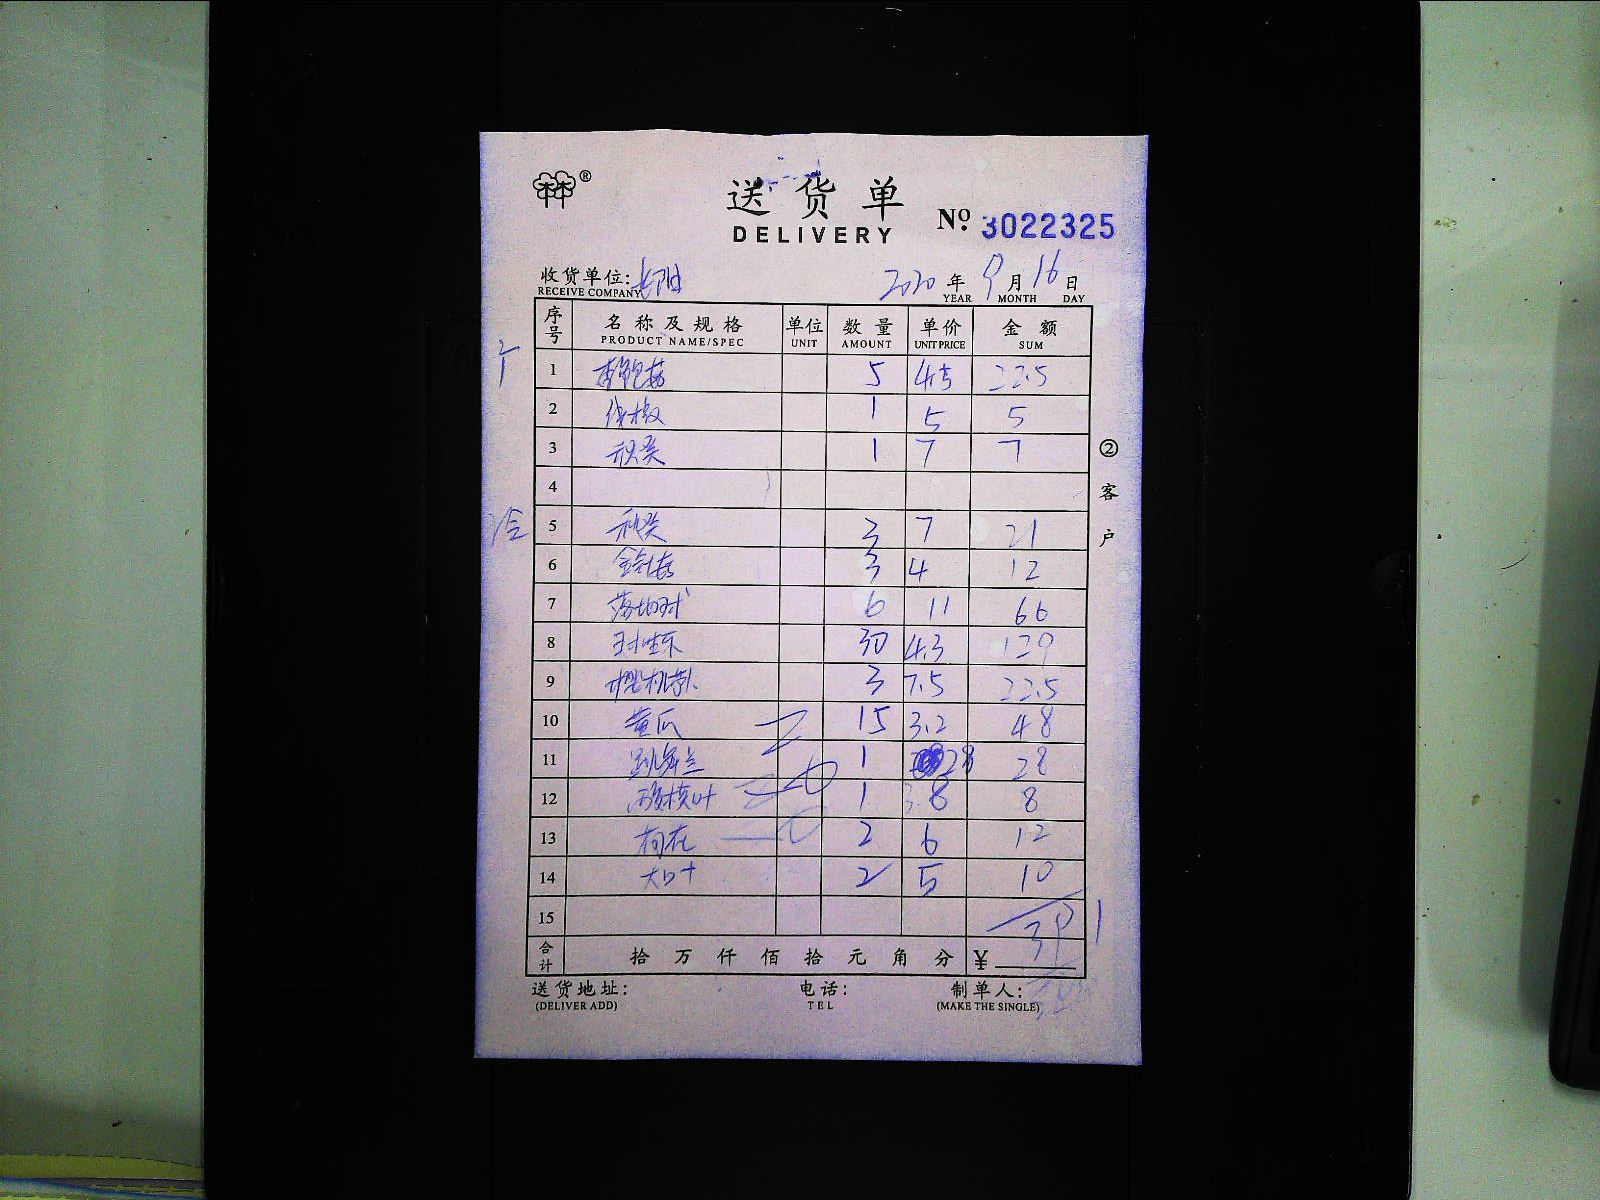 林®
送货单
DELIVERY
№ 3022325
收货单位:
RECEIVE COMPANY
2020 年 9 月 16 日
YEAR MONTH DAY
序号 名称及规格 单位 数量 单价 金额
PRODUCT NAME/SPEC UNIT AMOUNT UNIT PRICE SUM
1 杏鲍菇 5 4.5 22.5
2 线椒 1 5 5
3 秋葵 1 7 7
4
冷 5 秋葵 3 7 21
6 3 4 12
7 6 11 66
8 30 4.3 129
9 3 7.5 22.5
10 黄瓜 15 3.2 48
11 跳舞兰 1 28 28
12 酸模叶 1 8 8
13 2 6 12
14 大叶 2 5 10
15
391
合计 拾 万 仟 佰 拾 元 角 分 ¥
② 客户
送货地址: 电话: 制单人:
(DELIVER ADD) TEL (MAKE THE SINGLE)